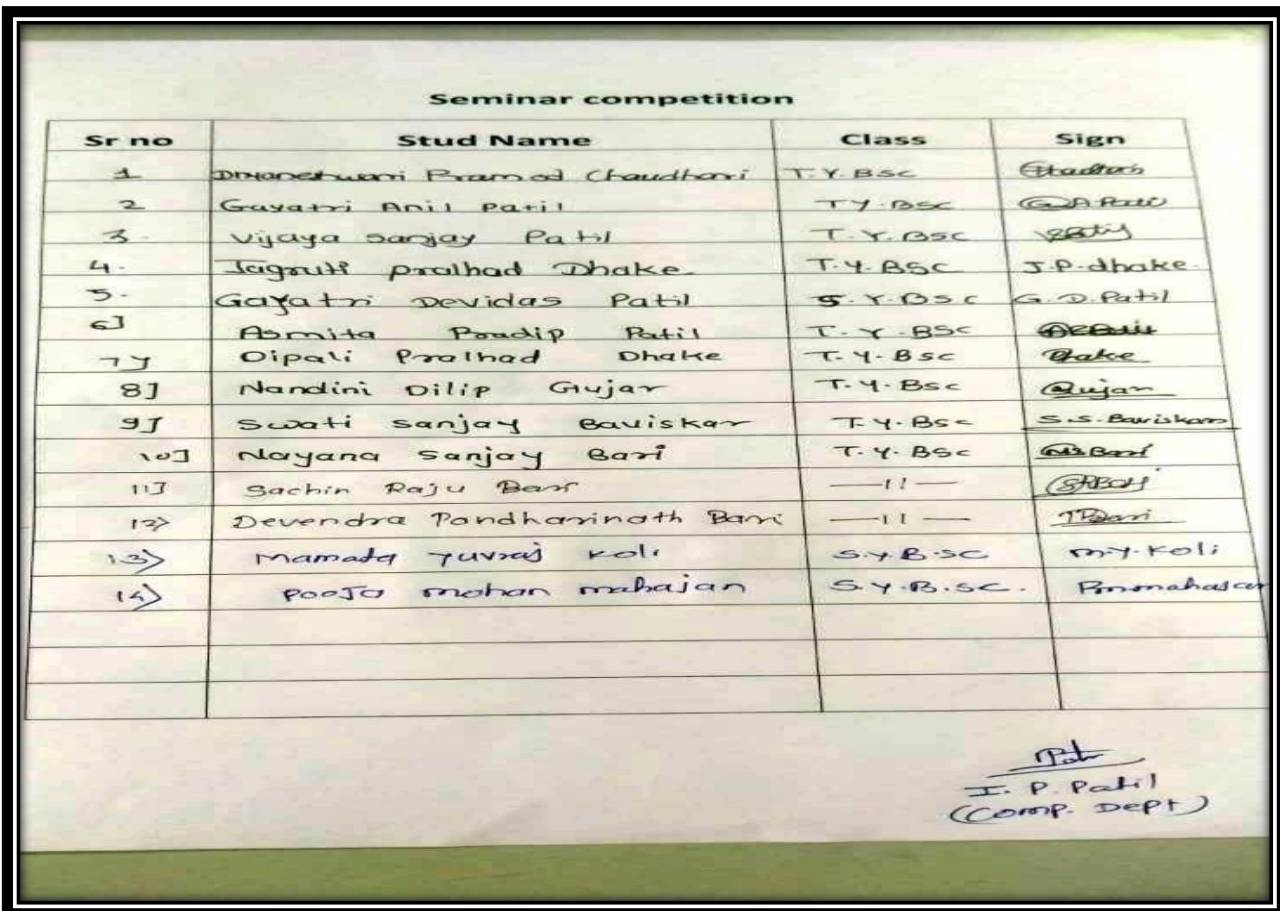 Seminar competition
Sr no Stud Name Class Sign
1 Dnyaneshwari Pramod Chaudhari T.Y.BSC
2 Gayatri Anil Patil TY.BSC G.A.Patil
3. Vijaya sanjay Patil T.Y.BSC
4. Jagruti pralhad Dhake T.Y.BSC J.P.dhake.
5. Gayatri Devidas Patil S.Y.BSC G.D.Patil
6] Asmita Pradip Patil T.Y.BSC
7] Dipali Pralhad Dhake T.Y.Bsc Dhake
8] Nandini Dilip Gujar T.Y.Bsc Gujar
9] Swati sanjay Baviskar T.Y.Bsc S.S.Baviskar
10] Nayana sanjay Bari T.Y.BSC NSBari
11] Sachin Raju Bari —11— SRBari
12> Devendra Pandharinath Bari —11—
13> mamata yuvraj koli S.Y.B.SC m.y.koli
14> pooja mohan mahajan S.Y.B.SC. Pmmahajan
I. P. Patil
(Comp. Dept)